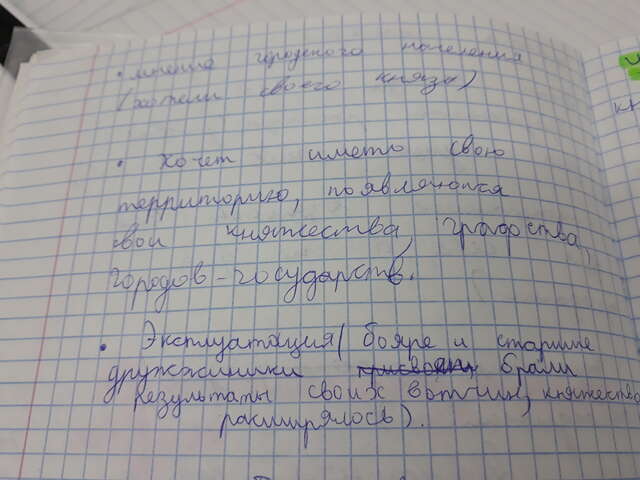 • мнение городского населения
(хотели своего князя)
• Хочет иметь свою
территорию, появляются
свои княжества, графства,
городов-государств.
• Эксплуатация (бояре и старшие
дружинники присвоили брали
результаты своих вотчин, княжество
расширялось).